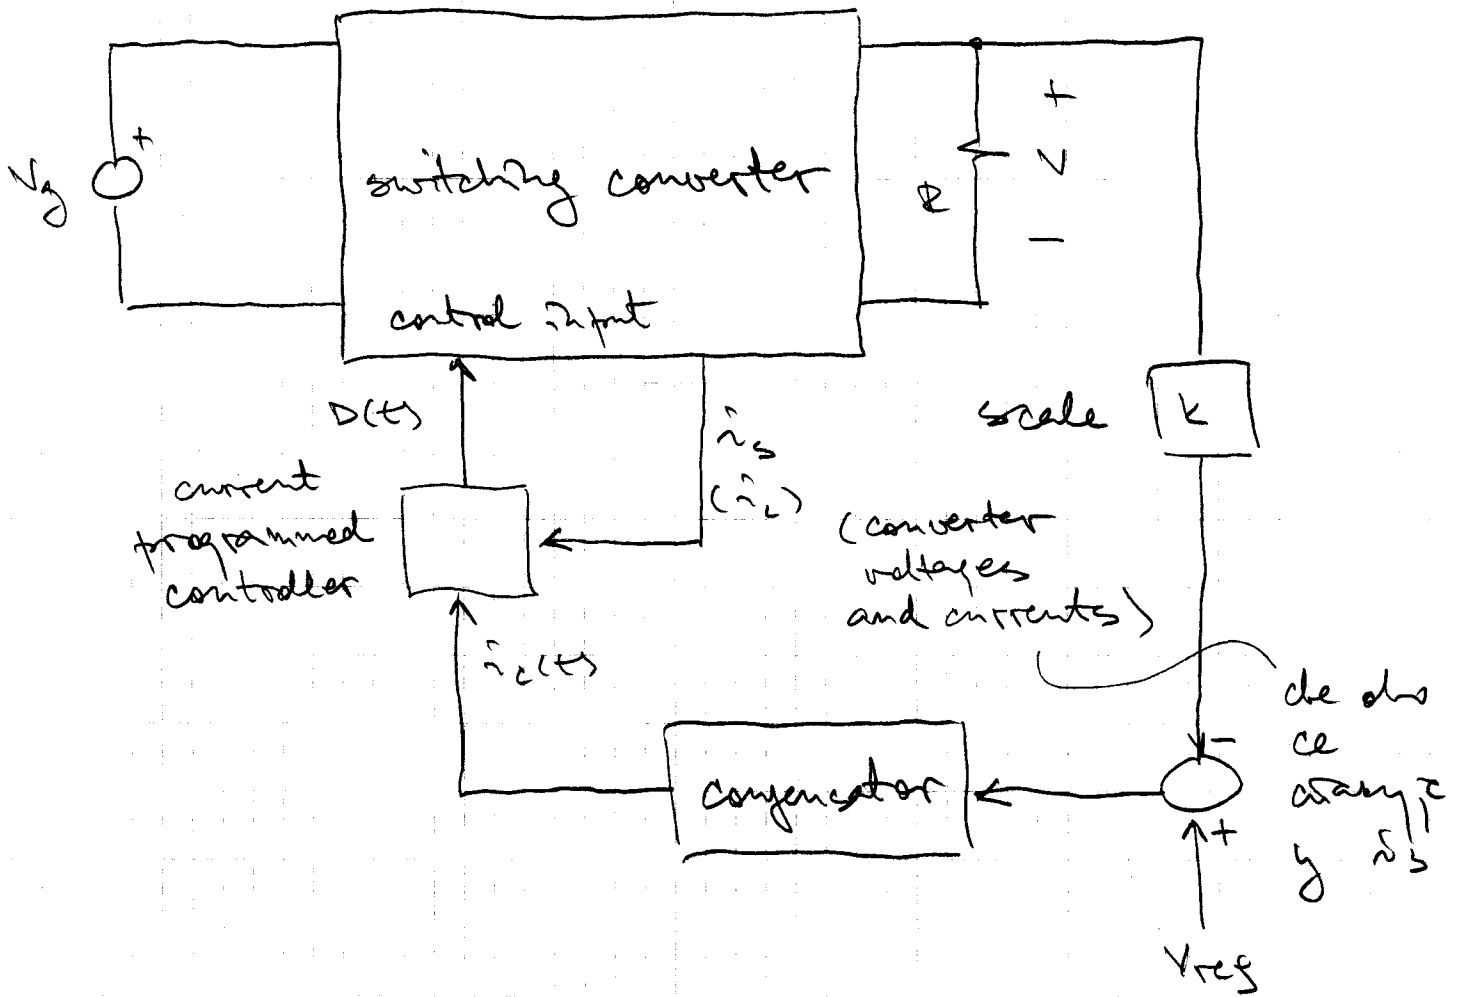 +
Vg
switching converter
R
+
V
−
control input
D(t)
is
(iL)
scale
k
current
programmed
controller
(converter
voltages
and currents)
ic(t)
compensator
−
+
Vref